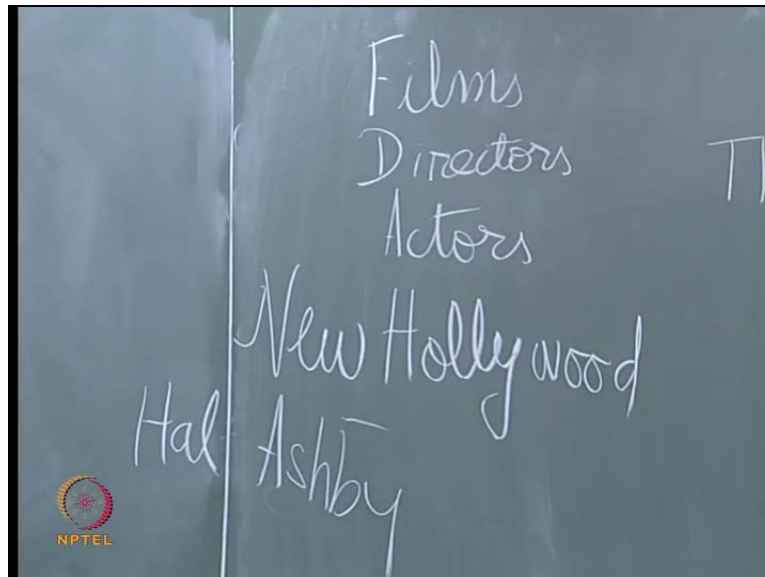 Films
Directors
Actors
New Hollywood
Hal Ashby
NPTEL